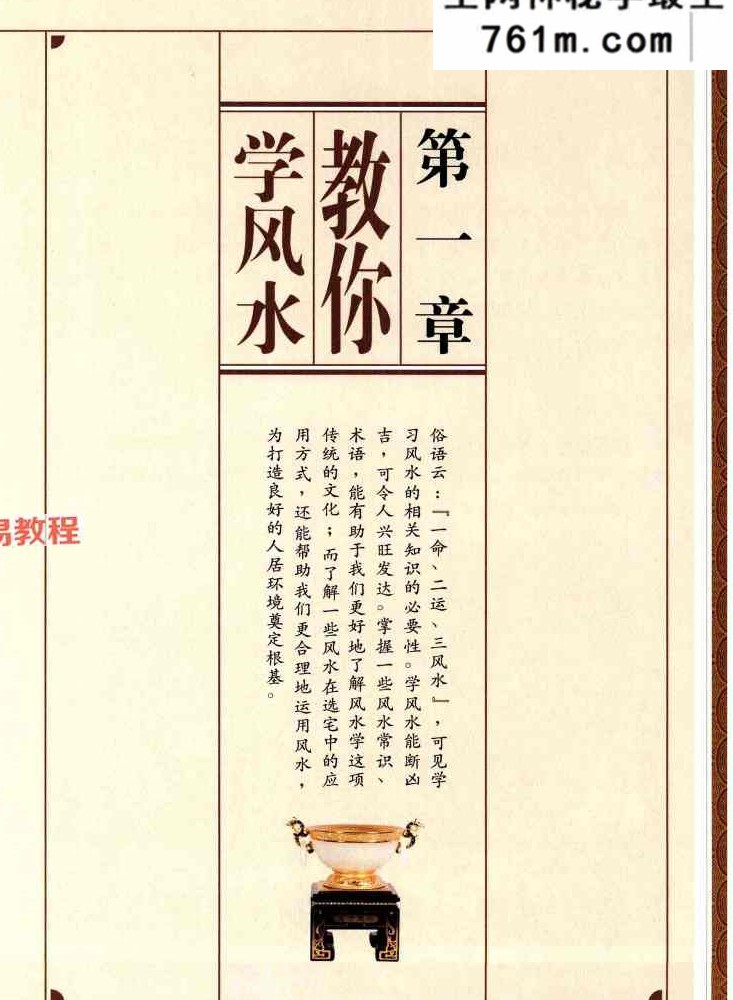 761m.com
第一章
教你
学风水
俗语云：『一命、二运、三风水』，可见学
习风水的相关知识的必要性。学风水能断凶
吉，可令人兴旺发达。掌握一些风水常识、
术语，能有助于我们更好地了解风水学这项
传统的文化；而了解一些风水在选宅中的应
用方式，还能帮助我们更合理地运用风水，
为打造良好的人居环境奠定根基。
易教程